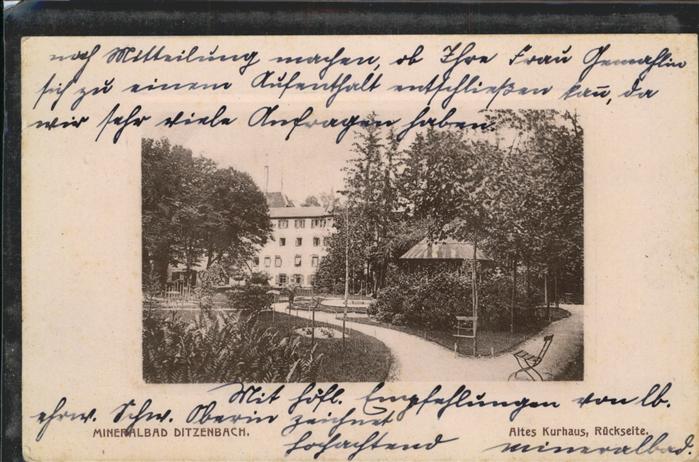 noch Mitteilung machen, ob Ihre Frau Gemahlin
sich zu einem Aufenthalt entschließen kann, da
wir sehr viele Anfragen haben.
Mit höfl. Empfehlungen von lb.
ehrw. Schw. Oberin zeichnet
hochachtend mineralbad.
MINERALBAD DITZENBACH.
Altes Kurhaus, Rückseite.